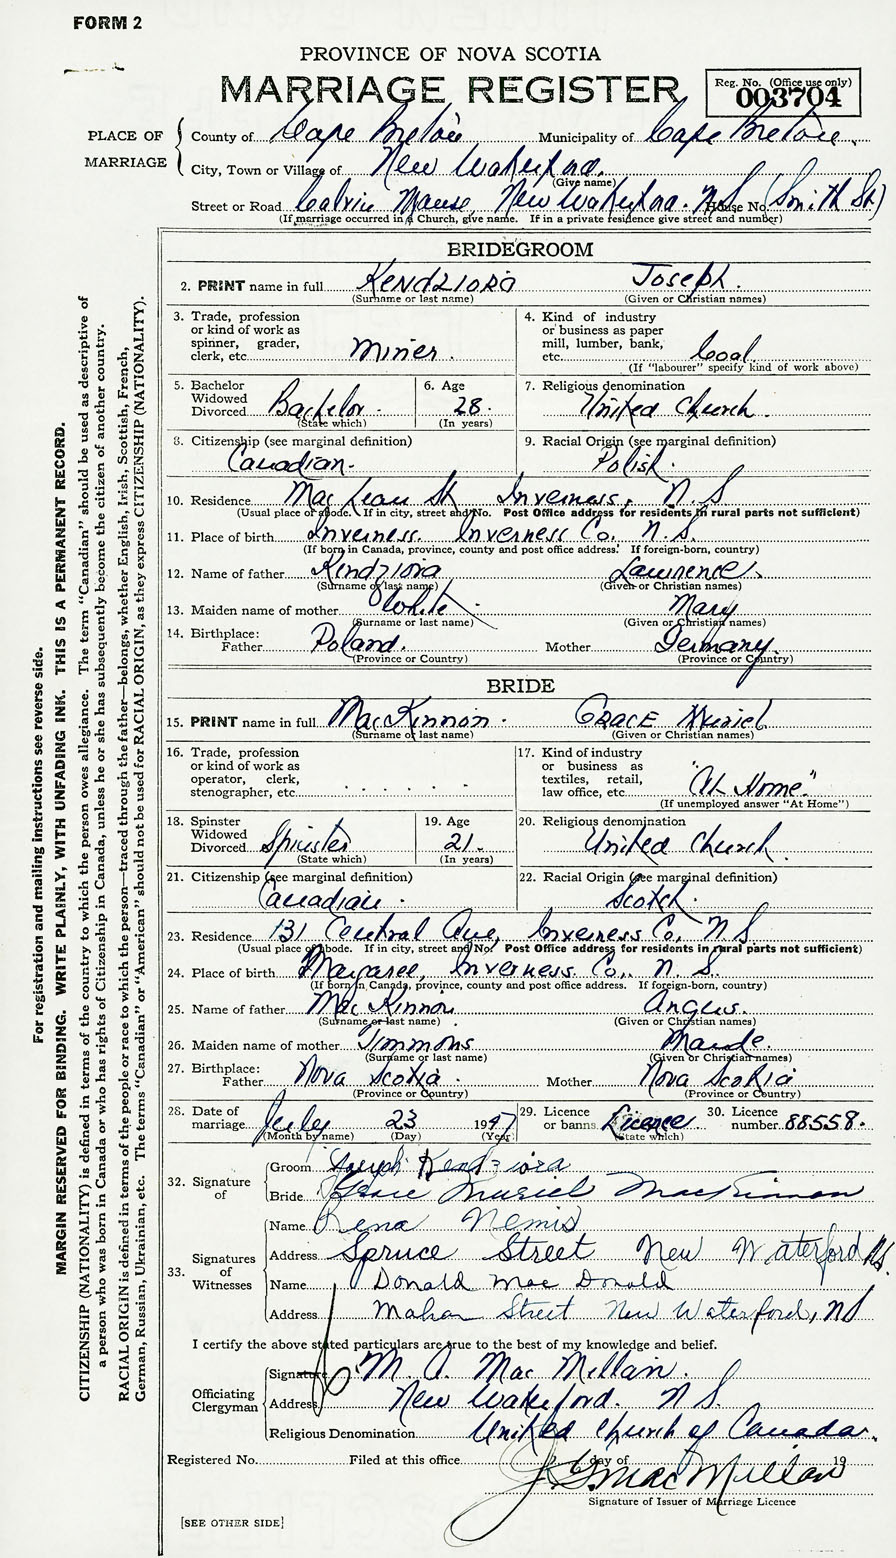 FORM 2
PROVINCE OF NOVA SCOTIA
MARRIAGE REGISTER
Reg. No. (Office use only)
003704
PLACE OF MARRIAGE
County of Cape Breton Municipality of Cape Breton.
City, Town or Village of New Waterford.
(Give name)
Street or Road Calvin Manse, New Waterford. N.S. House No. (Smith St)
(If marriage occurred in a Church, give name. If in a private residence give street and number)
BRIDEGROOM
2. PRINT name in full Kendziora Joseph.
(Surname or last name) (Given or Christian names)
3. Trade, profession or kind of work as spinner, grader, clerk, etc. Miner.
4. Kind of industry or business as paper mill, lumber, bank, etc. Coal
(If "labourer" specify kind of work above)
5. Bachelor Widowed Divorced Bachelor.
(State which)
6. Age 28.
(In years)
7. Religious denomination United Church.
8. Citizenship (see marginal definition) Canadian.
9. Racial Origin (see marginal definition) Polish.
10. Residence MacLean St Inverness, N.S
(Usual place of abode. If in city, street and No. Post Office address for residents in rural parts not sufficient)
11. Place of birth Inverness. Inverness Co. N.S.
(If born in Canada, province, county and post office address. If foreign-born, country)
12. Name of father Kendziora Lawrence.
(Surname or last name) (Given or Christian names)
13. Maiden name of mother White Mary
(Surname or last name) (Given or Christian names)
14. Birthplace:
Father Poland. Mother Germany.
(Province or Country) (Province or Country)
BRIDE
15. PRINT name in full MacKinnon. GRACE Muriel
(Surname or last name) (Given or Christian names)
16. Trade, profession or kind of work as operator, clerk, stenographer, etc. . . . . . .
17. Kind of industry or business as textiles, retail, law office, etc. "At Home."
(If unemployed answer "At Home")
18. Spinster Widowed Divorced Spinster
(State which)
19. Age 21.
(In years)
20. Religious denomination United Church.
21. Citizenship (see marginal definition) Canadian.
22. Racial Origin (see marginal definition) Scotch.
23. Residence 131 Central Ave, Inverness Co, N S
(Usual place of abode. If in city, street and No. Post Office address for residents in rural parts not sufficient)
24. Place of birth Margaree, Inverness Co., N. S.
(If born in Canada, province, county and post office address. If foreign-born, country)
25. Name of father MacKinnon Angus.
(Surname or last name) (Given or Christian names)
26. Maiden name of mother Timmons Maude.
(Surname or last name) (Given or Christian names)
27. Birthplace:
Father Nova Scotia. Mother Nova Scotia
(Province or Country) (Province or Country)
28. Date of marriage July 23 1947
(Month by name) (Day) (Year)
29. Licence or banns Licence
(State which)
30. Licence number 88558.
32. Signature of
Groom Joseph Kendziora
Bride Grace Muriel MacKinnon
33. Signatures of Witnesses
Name Rena Nemis
Address Spruce Street New Waterford N.S.
Name Donald MacDonald
Address Mahon Street New Waterford, NS
I certify the above stated particulars are true to the best of my knowledge and belief.
Officiating Clergyman
Signature M. A. MacMillan.
Address New Waterford. N S.
Religious Denomination United Church of Canada.
Registered No. Filed at this office day of 19
J. G. MacMillan
Signature of Issuer of Marriage Licence
[SEE OTHER SIDE]
For registration and mailing instructions see reverse side.
MARGIN RESERVED FOR BINDING. WRITE PLAINLY, WITH UNFADING INK. THIS IS A PERMANENT RECORD.
CITIZENSHIP (NATIONALITY) is defined in terms of the country to which the person owes allegiance. The term "Canadian" should be used as descriptive of
a person who was born in Canada or who has rights of Citizenship in Canada, unless he or she has subsequently become the citizen of another country.
RACIAL ORIGIN is defined in terms of the people or race to which the person—traced through the father—belongs, whether English, Irish, Scottish, French,
German, Russian, Ukrainian, etc. The terms "Canadian" or "American" should not be used for RACIAL ORIGIN, as they express CITIZENSHIP (NATIONALITY).